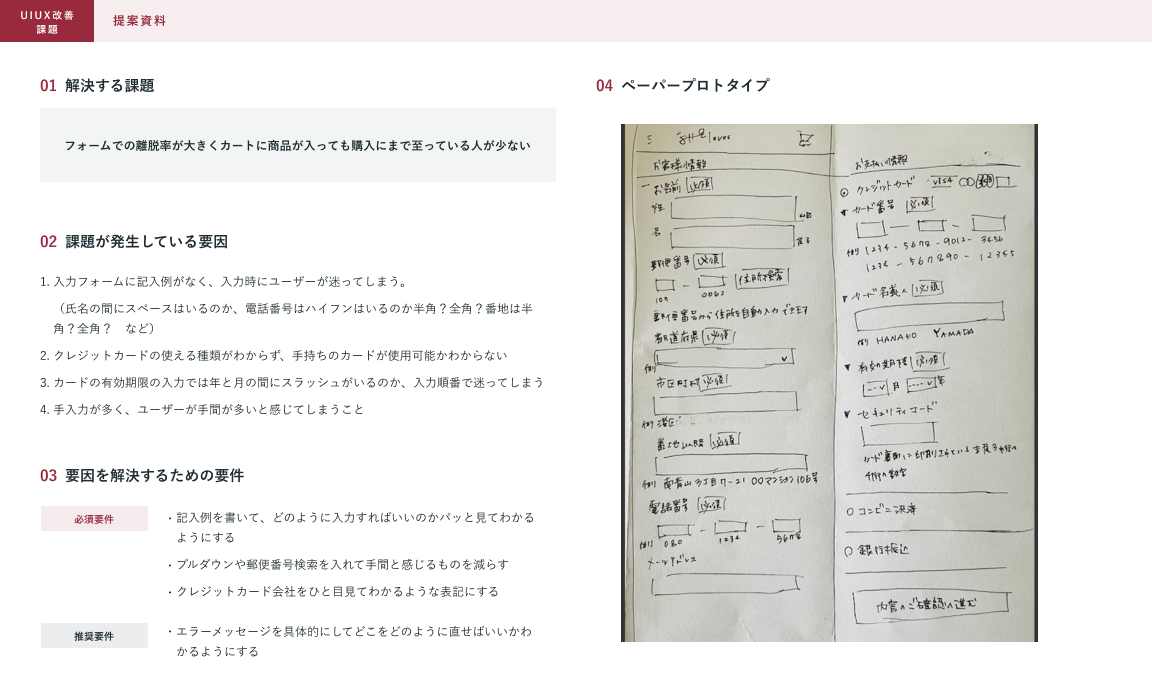 UIUX改善
課題
提案資料
01 解決する課題
フォームでの離脱率が大きくカートに商品が入っても購入にまで至っている人が少ない
02 課題が発生している要因
1. 入力フォームに記入例がなく、入力時にユーザーが迷ってしまう。
（氏名の間にスペースはいるのか、電話番号はハイフンはいるのか半角？全角？番地は半
角？全角？　など）
2. クレジットカードの使える種類がわからず、手持ちのカードが使用可能かわからない
3. カードの有効期限の入力では年と月の間にスラッシュがいるのか、入力順番で迷ってしまう
4. 手入力が多く、ユーザーが手間が多いと感じてしまうこと
03 要因を解決するための要件
必須要件
・記入例を書いて、どのように入力すればいいのかパッと見てわかる
ようにする
・プルダウンや郵便番号検索を入れて手間と感じるものを減らす
・クレジットカード会社をひと目見てわかるような表記にする
推奨要件
・エラーメッセージを具体的にしてどこをどのように直せばいいかわ
かるようにする
04 ペーパープロトタイプ
お客様情報
お名前 必須
姓
名
郵便番号 必須
住所検索
郵便番号から住所を自動入力できます
都道府県 必須
例
市区町村 必須
例 港区
番地 必須
例 南青山3丁目7-21 〇〇マンション106号
電話番号 必須
例 080 1234 5678
メールアドレス
お支払い情報
クレジットカード VISA
カード番号 必須
例 1234 - 5678 - 9012 - 3456
1234 - 567890 - 12345
カード名義人 必須
例 HANAKO YAMADA
有効期限 必須
月 年
セキュリティコード
カード裏面に印刷されている末尾3桁の
コンビニ決済
銀行振込
内容のご確認へ進む